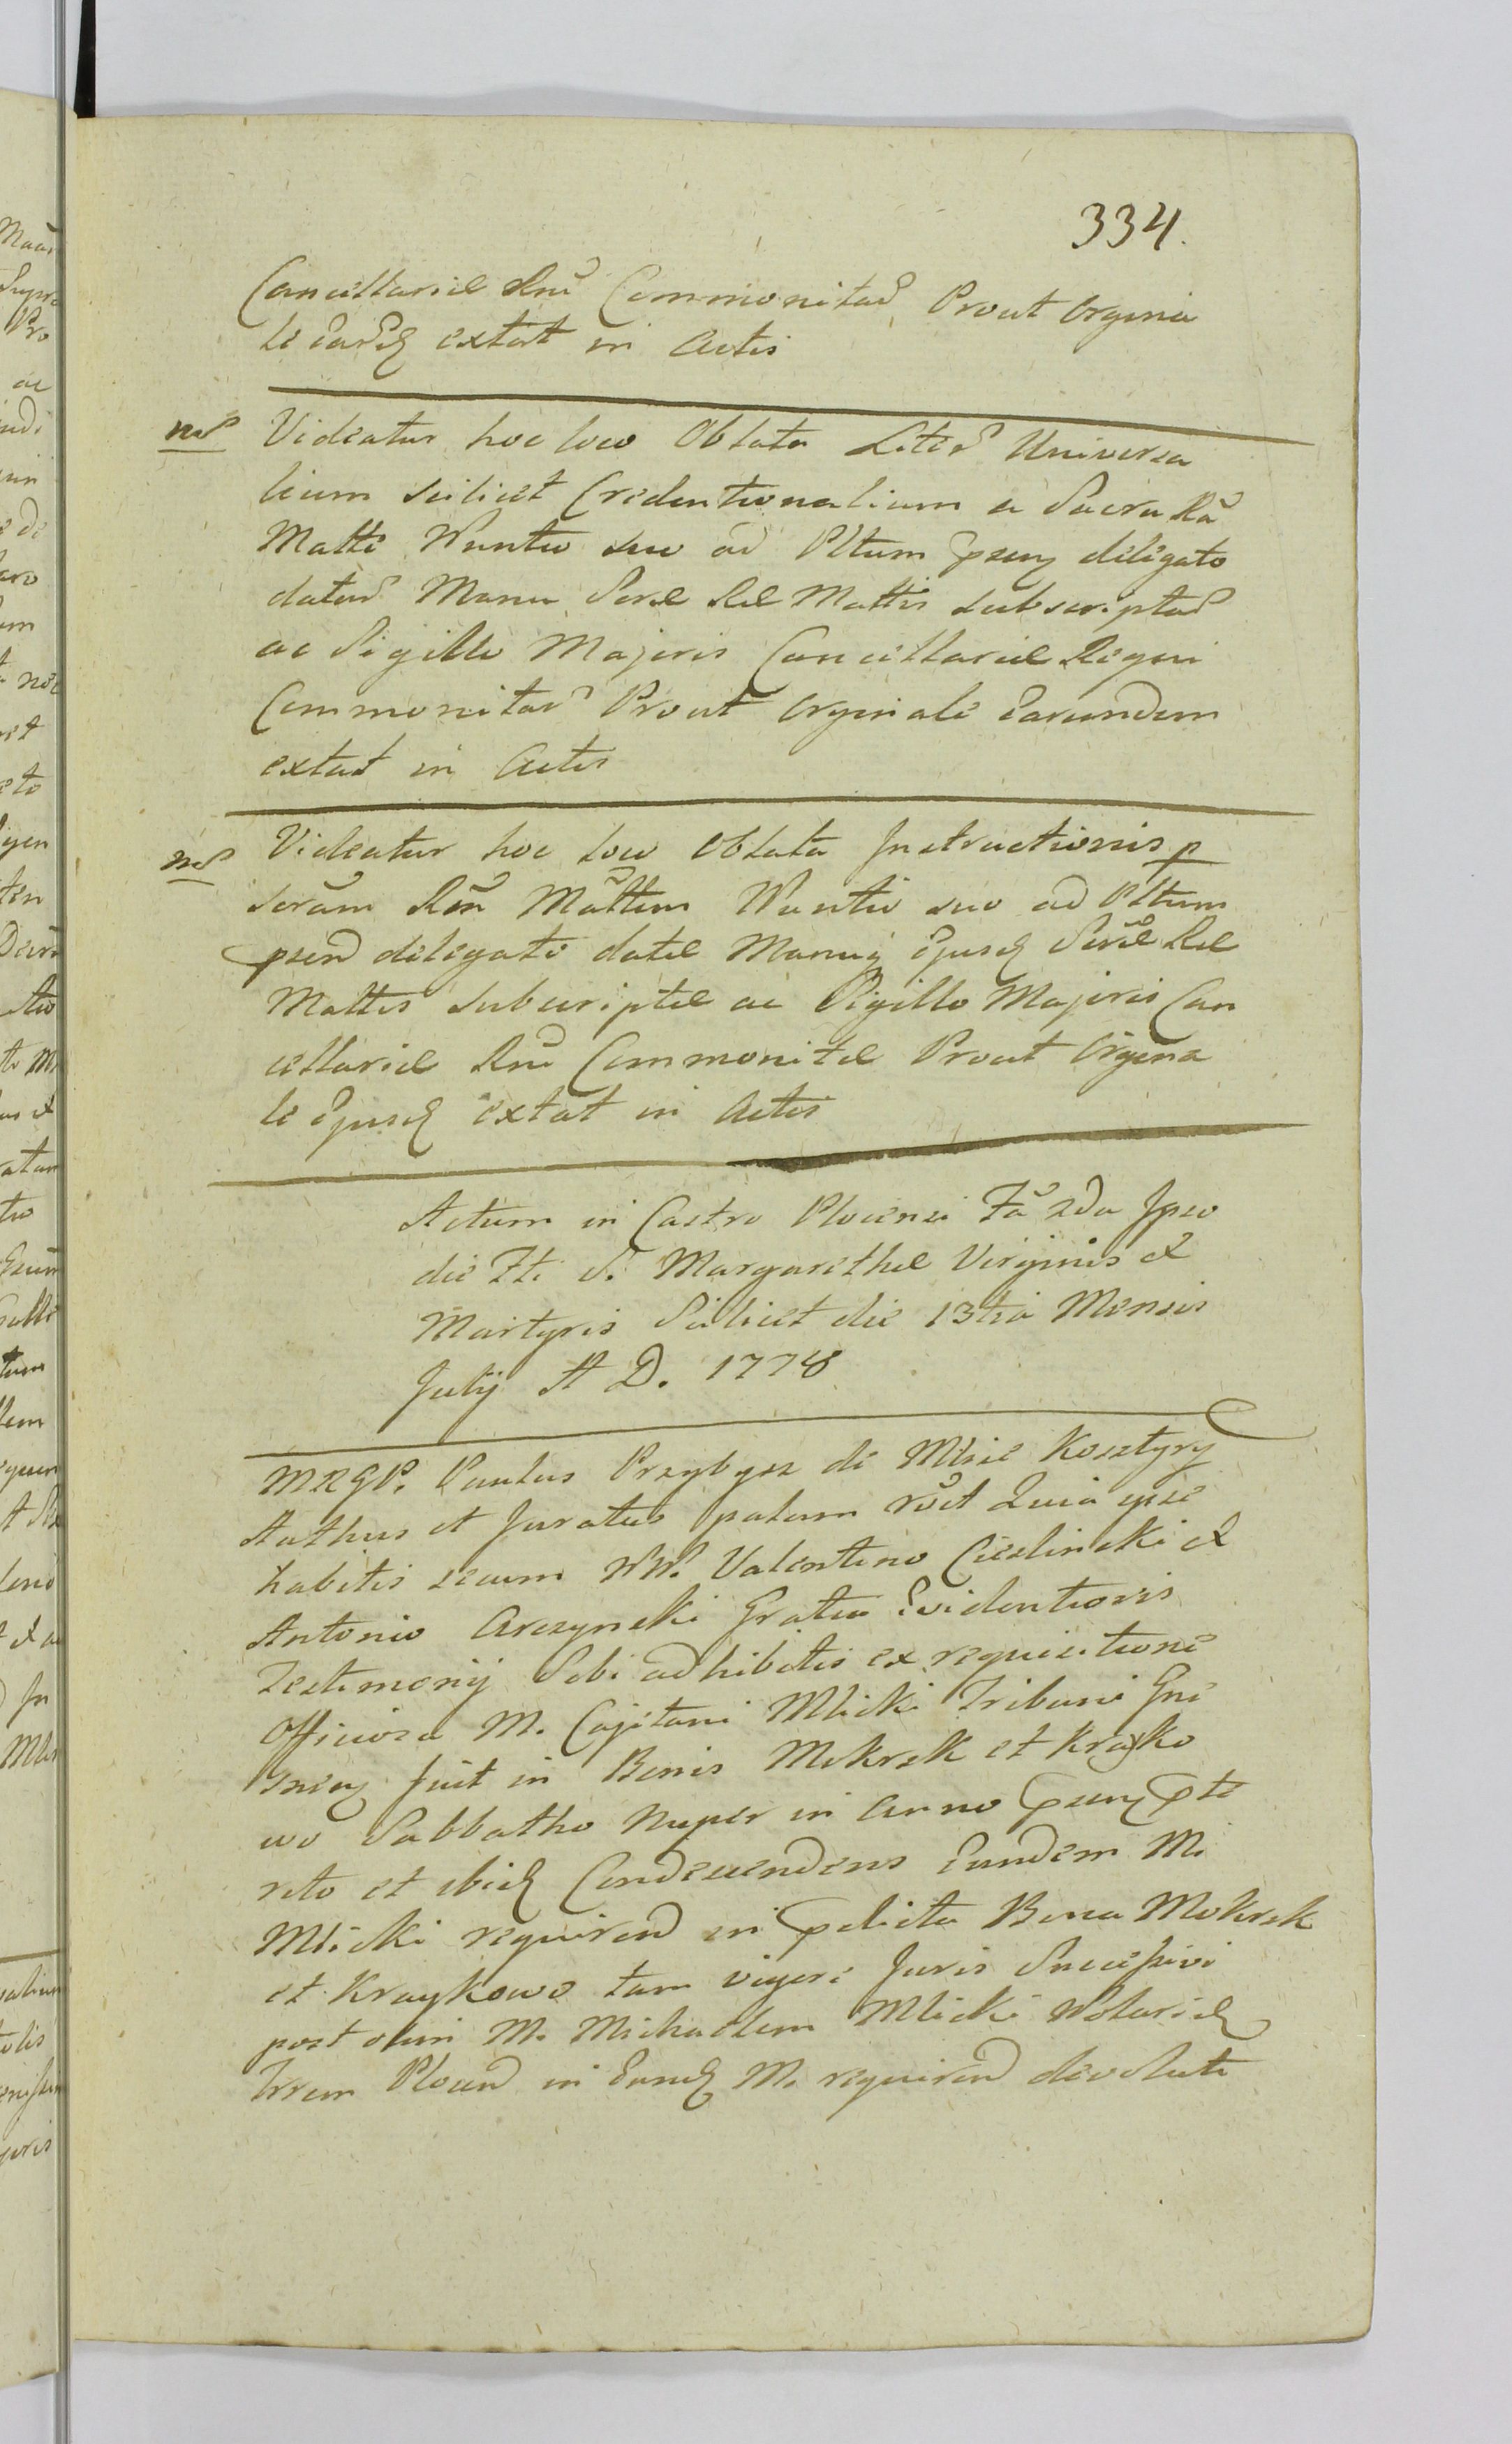 334.
Cancellariæ Rni Commonitar Prout Orgina
le Earundem extat in Actis
Videatur hoc loco Oblata Liter Universa
lium scilicet Credentionalium a Sacra Ra
Matte Nuntio suo ad Pltum psens delegato
datar Manu Sacræ Ræ Mattis subscriptar
ac Sigillo Majoris Cancellariæ Regni
Commonitar Prout Orginale Earundem
extat in Actis
Videatur hoc loco Oblata Instructionis p
Seram Rem Mattem Nuntio suo ad Pltum
psen delegato datæ Manuq ejusd Seræ Ræ
Mattis subscriptæ ac Sigillo Majoris Can
cellariæ Rni Commonitæ Prout Orgina
le Ejusd extat in Actis
Actum in Castro Plocensi Fa 2da Ipso
die Fti S. Margarethæ Virginis et
Martyris Scilicet die 13tia Mensis
July A D. 1778
MRGP. Paulus Przybysz de Mlice Kosztyry
Authus et Juratus palam rct Quia ipse
habitis secum NN. Valentino Cieslinski et
Antonio Arczynski Gratia Evidentioris
Testimonij Sibi adhibitis ex requisitione
Officiosa M. Cajetani Mlicki Tribuni Gne
sneq fuit in Bonis Mokrzk et Krayko
wo Sabbatho Nuper in Anno psenq pte
rito et ibid Condescendens Eundem M.
Mlicki requiren in pdicta Bona Mokrzk
et Kraykowo tam vigore Juris Successivi
post olim M. Michaelem Mlicki Notarium
Trrem Plocen in Eund M. requiren devoluti